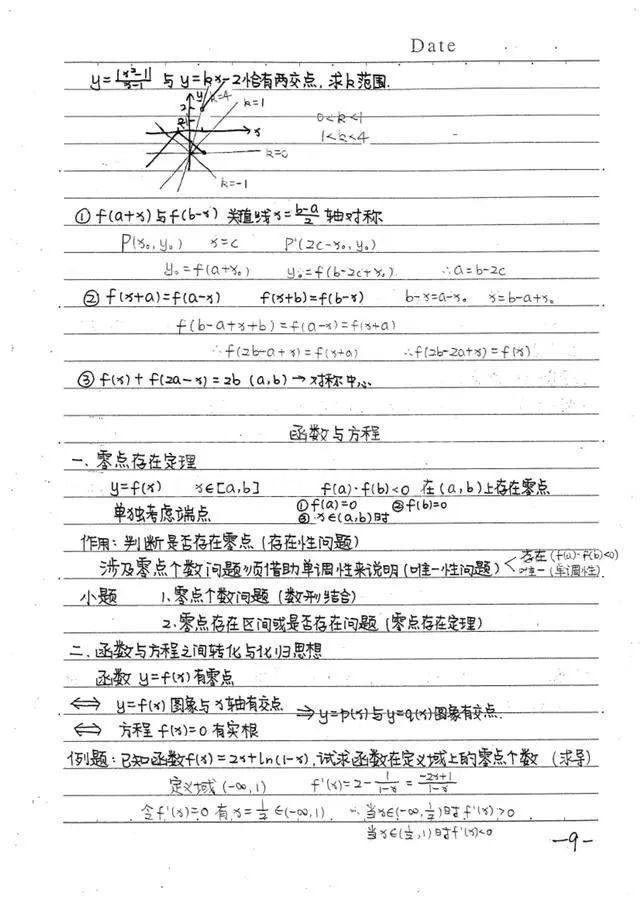 Date
y=|x²-1|/(x-1) 与 y=kx-2恰有两交点，求k范围.
y k=4
k=1
2
x
0<k<1
1<k<4
k=0
k=-1
① f(a+x)与f(b-x) 关直线x=(b-a)/2 轴对称
P(x₀,y₀) x=c P'(2c-x₀,y₀)
y₀=f(a+x₀) y₀=f(b-2c+x₀) ∴a=b-2c
② f(x+a)=f(a-x) f(x+b)=f(b-x) b-x=a-x₀ x=b-a+x₀
f(b-a+x+b)=f(a-x)=f(x+a)
∴f(2b-a+x)=f(x+a) ∴f(2b-2a+x)=f(x)
③ f(x)+f(2a-x)=2b (a,b)→对称中心
函数与方程
一、零点存在定理
y=f(x) x∈[a,b] f(a)·f(b)<0 在(a,b)上存在零点
单独考虑端点 ①f(a)=0 ②f(b)=0
③x∈(a,b)时
作用：判断是否存在零点(存在性问题)
涉及零点个数问题须借助单调性来说明(唯一性问题) 存在(f(a)·f(b)<0)
唯一(单调性)
小题 1.零点个数问题(数形结合)
2.零点存在区间或是否存在问题(零点存在定理)
二、函数与方程之间转化与化归思想
函数 y=f(x)有零点
⇔ y=f(x)图象与x轴有交点 ⇒y=p(x)与y=q(x)图象有交点.
⇔ 方程 f(x)=0有实根
例题：已知函数f(x)=2x+ln(1-x),试求函数在定义域上的零点个数 (求导)
定义域(-∞,1) f'(x)=2-1/(1-x)=(-2x+1)/(1-x)
令f'(x)=0有x=1/2∈(-∞,1) ∴当x∈(-∞,1/2)时f'(x)>0
当x∈(1/2,1)时f'(x)<0
-9-